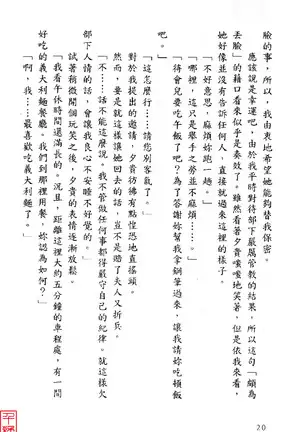 臉的事，所以，我由衷地希望她能夠替我保密。
應該說是幸運吧，由於我平時對待部下嚴厲管教的結果，所以這句「頗為
丟臉」的藉口看來似乎是奏效了。雖然看著夕貴嗤嗤地笑著，但是依我來看，
她好像並沒有告訴任何人，直接就過來這裡的樣子。
「不好意思，麻煩妳跑一趟。」
「哪裡，這只是舉手之勞並不麻煩。」
「待會兒要吃午飯了吧？為了答謝妳幫我拿鋼筆過來，讓我請妳吃頓飯
吧。」
「這怎麼行……請您別客氣了。」
對於我提出的邀請，夕貴彷彿有點惶恐地直搖頭。
然而，要是就這樣讓她回去的話，豈不是賠了夫人又折兵。
「不……話不能這麼說。我不管做任何事都得嚴守自己的紀律。就這樣欠
部下人情的話，會讓我良心不安睡不好覺的。」
試著稍微開個玩笑之後，夕貴的表情逐漸放鬆。
「我看午休時間還滿長的。況且，距離這裡大約五分鐘的車程處，有一間
好吃的義大利麵餐廳。我們到那裡用餐，妳認為如何？」
「啊，我……最喜歡吃義大利麵了！」
20